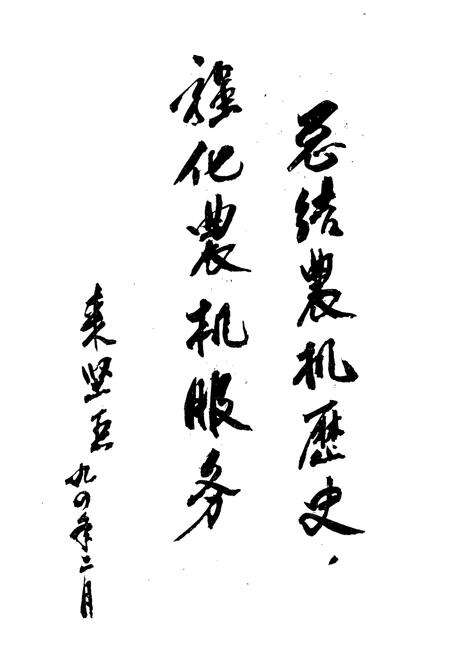 总结農机歷史，
强化農机服务
来坚巨
九四年二月